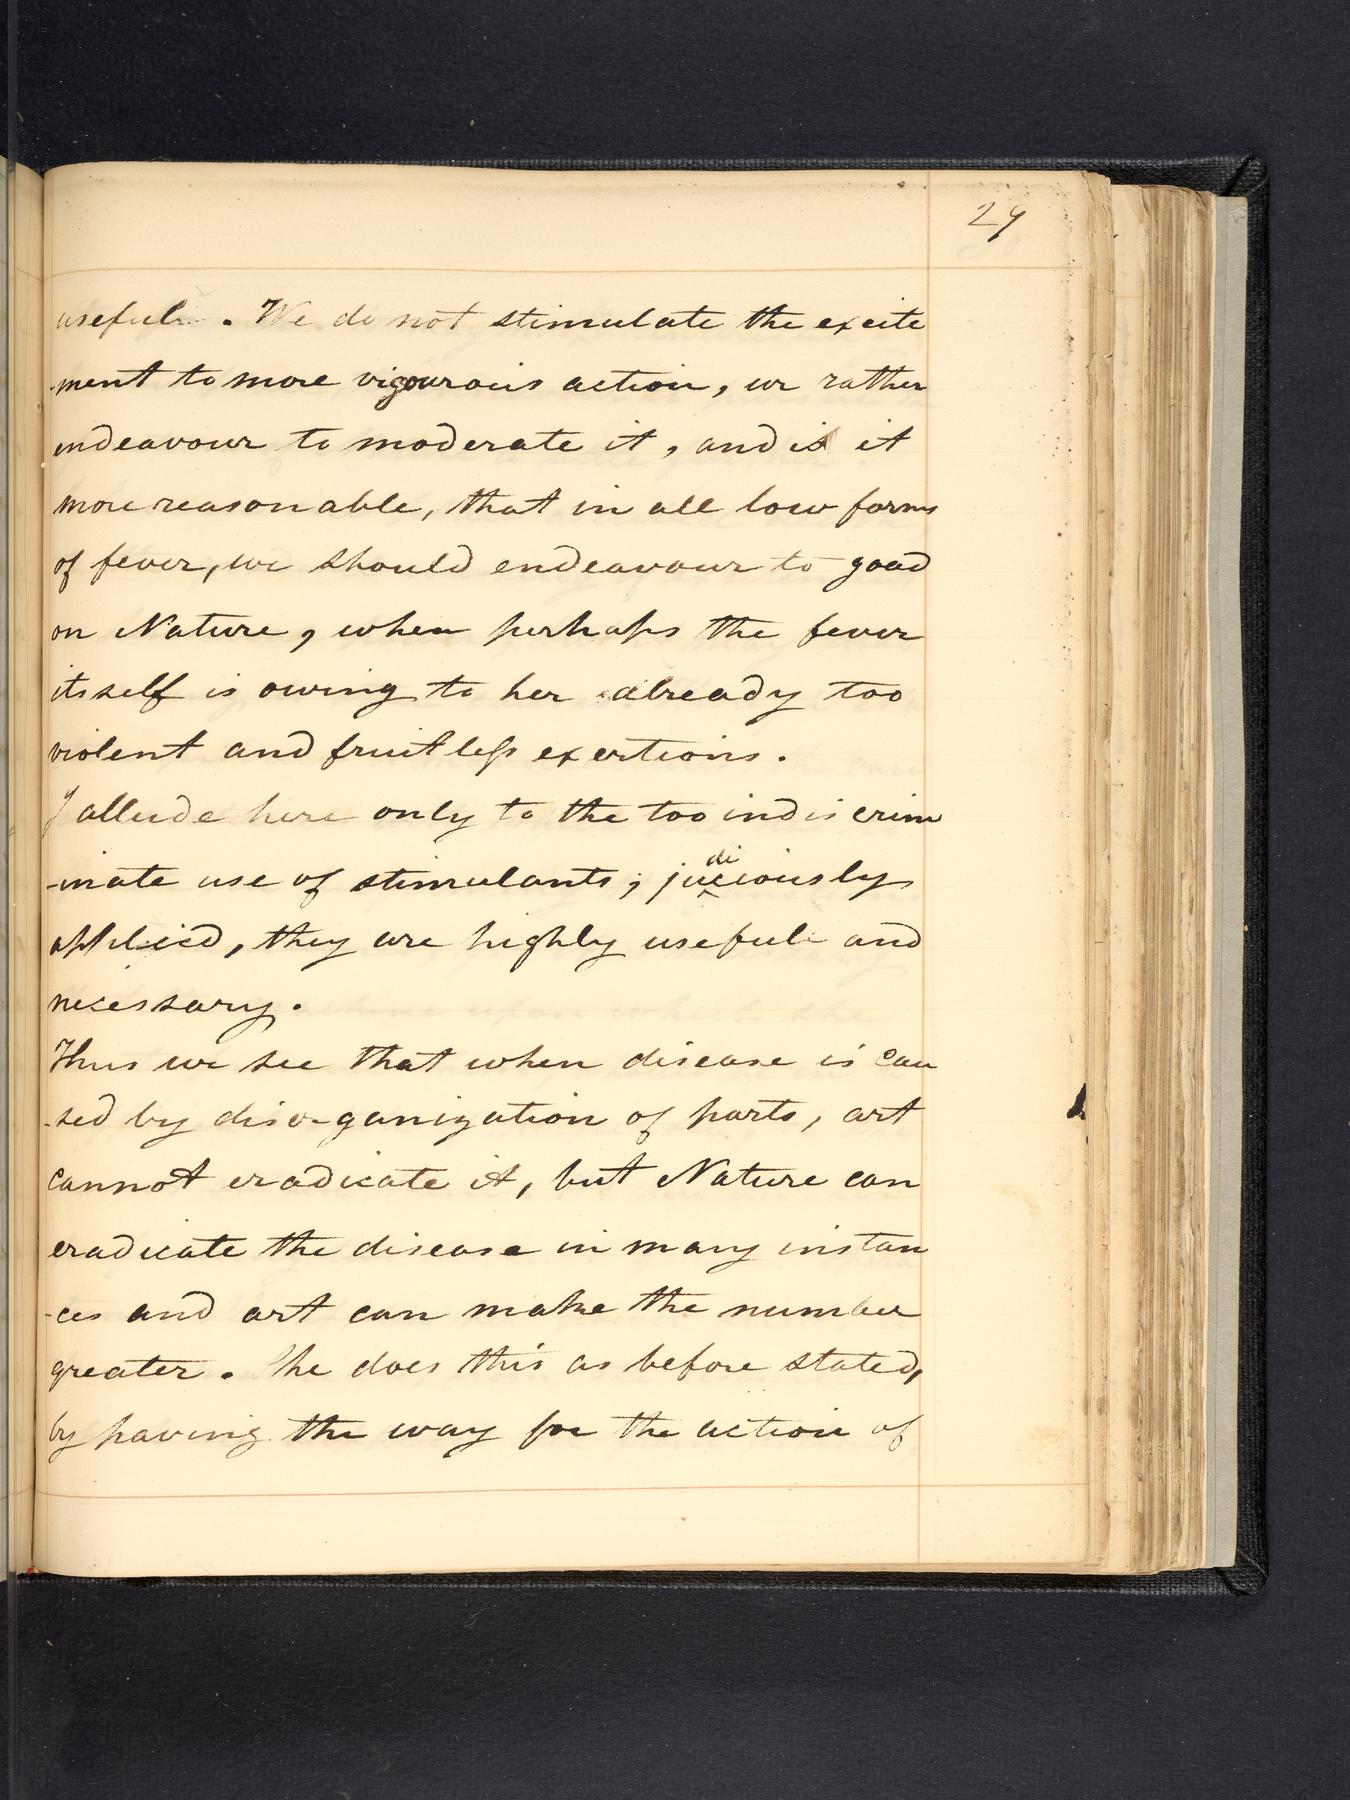 29
useful. We do not stimulate the excite
-ment to more vigourous action, we rather
endeavour to moderate it, and is it
more reasonable, that in all low forms
of fever, we should endeavour to goad
on Nature, when perhaps the fever
itself is owing to her already too
violent and fruitless exertions.
I allude here only to the too indiscrim
-inate use of stimulants; judiciously
applied, they are highly useful and
necessary.
Thus we see that when disease is cau
-sed by disorganization of parts, art
cannot eradicate it, but Nature can
eradicate the disease in many instan
-ces and art can make the number
greater. She does this as before stated,
by paving the way for the action of